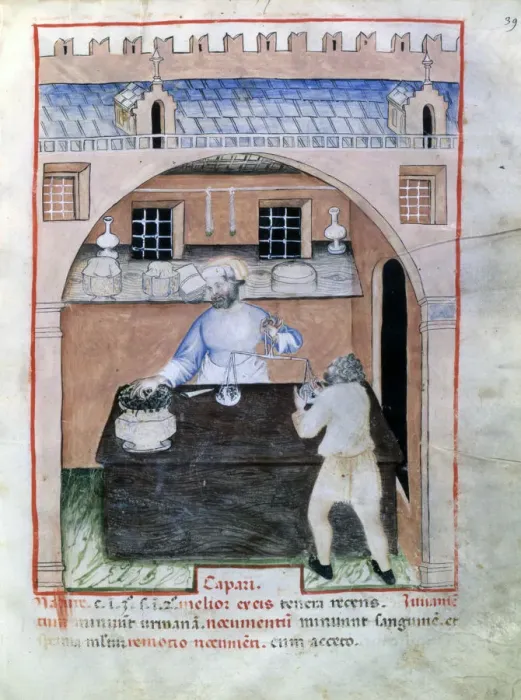 39
Capari.
Nature. c. i. s. i. melior ex eis tenera recens. Iuvame
tum minunt urinam. nocumentum minunt sanguine. et
sperma remotio nocumen. cum acceto.